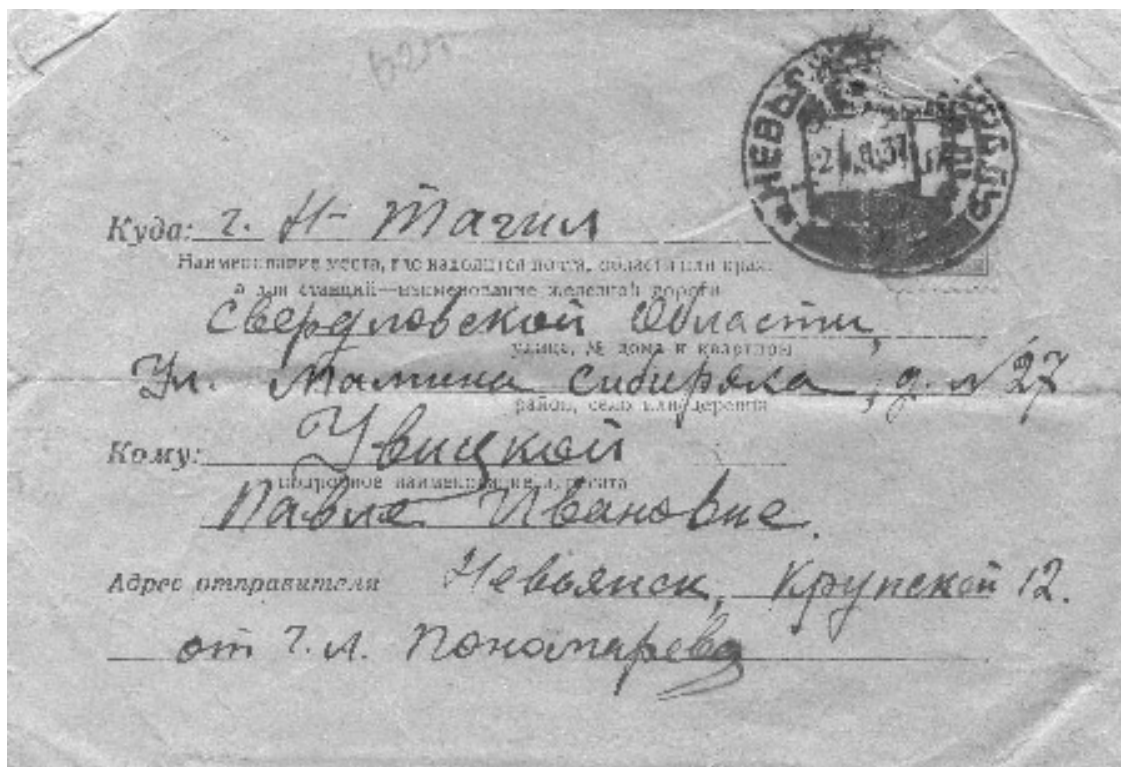 Куда: г. Н-Тагил
Наименование места, где находится почта, области или края,
а для станций—наименование железной дороги
Свердловской Области,
улица, № дома и квартиры
Ул. Мамина Сибиряка, д. № 27
район, село или деревня
Кому: Увицкой
подробное наименование адресата
Павле Ивановне.
Адрес отправителя Невьянск, Крупской 12.
от Г. Л. Пономарева